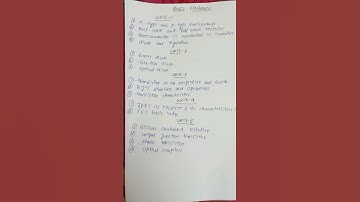 Basic Electronics
Unit-1
① N-Type and p-type Semiconductors
② Half wave and full wave rectifier
③ Semiconductor vs conductor vs insulator
④ diode
Unit-2
① Zener diode
② diode
③ Optical diode
Unit-3
① Transistor as an amplifier and
② BJT structure and operations
③ transistor characteristics
Unit-4
① JFET vs MOSFET & its characteristics
② FET
Unit-5
① silicon controlled rectifier
② unijunction transistor
③ photo transistor
④ Optical coupler